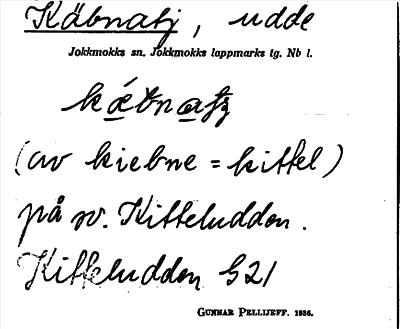 Käbnatj, udde
Jokkmokks sn. Jokkmokks lappmarks tg. Nb l.
(av kiebne = kittel)
på sv. Kitteludden.
Kitteludden S21
GUNNAR PELLIJEFF. 1956.